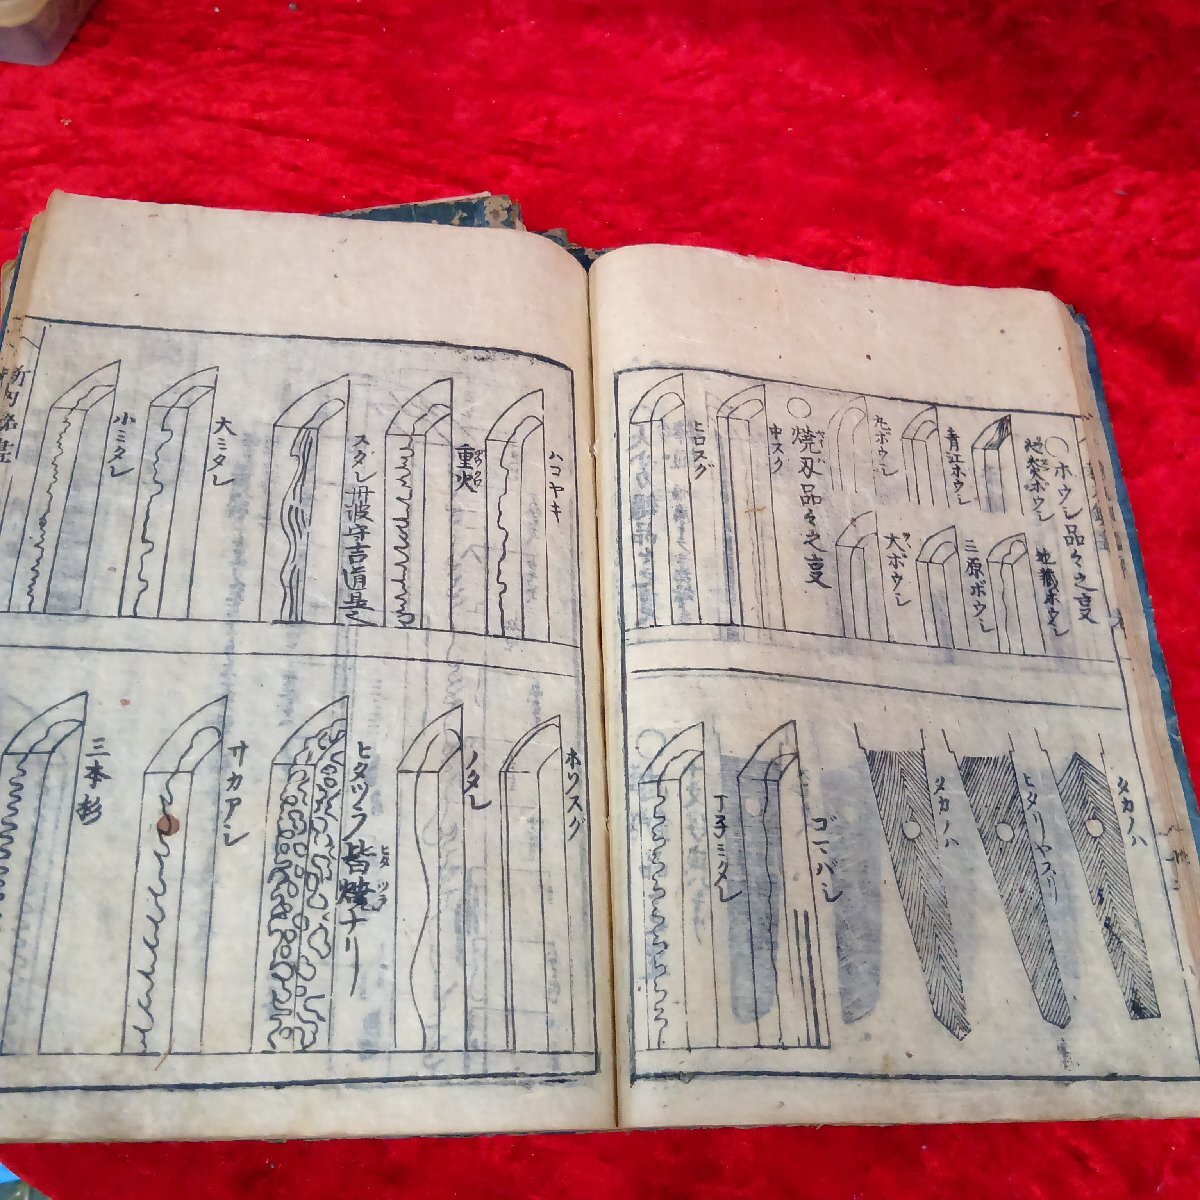 ホウシ品々之事
地蔵ホウシ
青江ホウシ
三原ボウシ
丸ボウシ
大ボウシ
焼刃品々之事
中スグ
ヒロスグ
タカノハ
ヒダリヤスリ
タカノハ
丁子ミダレ
ハコヤキ
重火
スダレ丹波守吉道是也
大ミダレ
小ミダレ
ホソスグ
ノタレ
ヒタツラ皆焼ナリ
ヒタツラ
サカアシ
三本杉